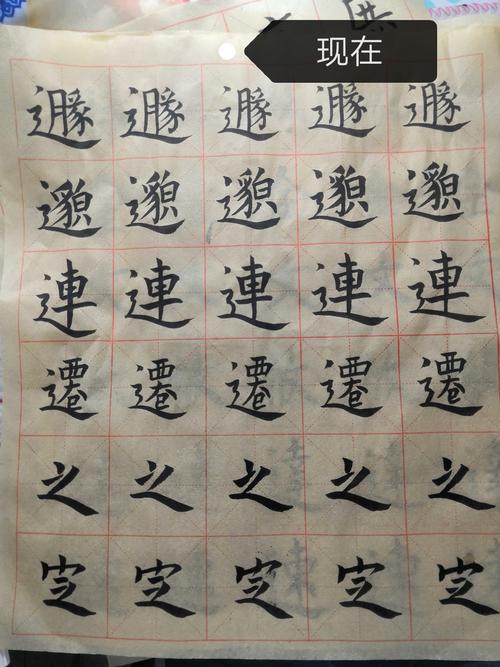 现在
遯 遯 遯 遯 遯
邈 邈 邈 邈 邈
連 連 連 連 連
遷 遷 遷 遷 遷
之 之 之 之 之
定 定 定 定 定